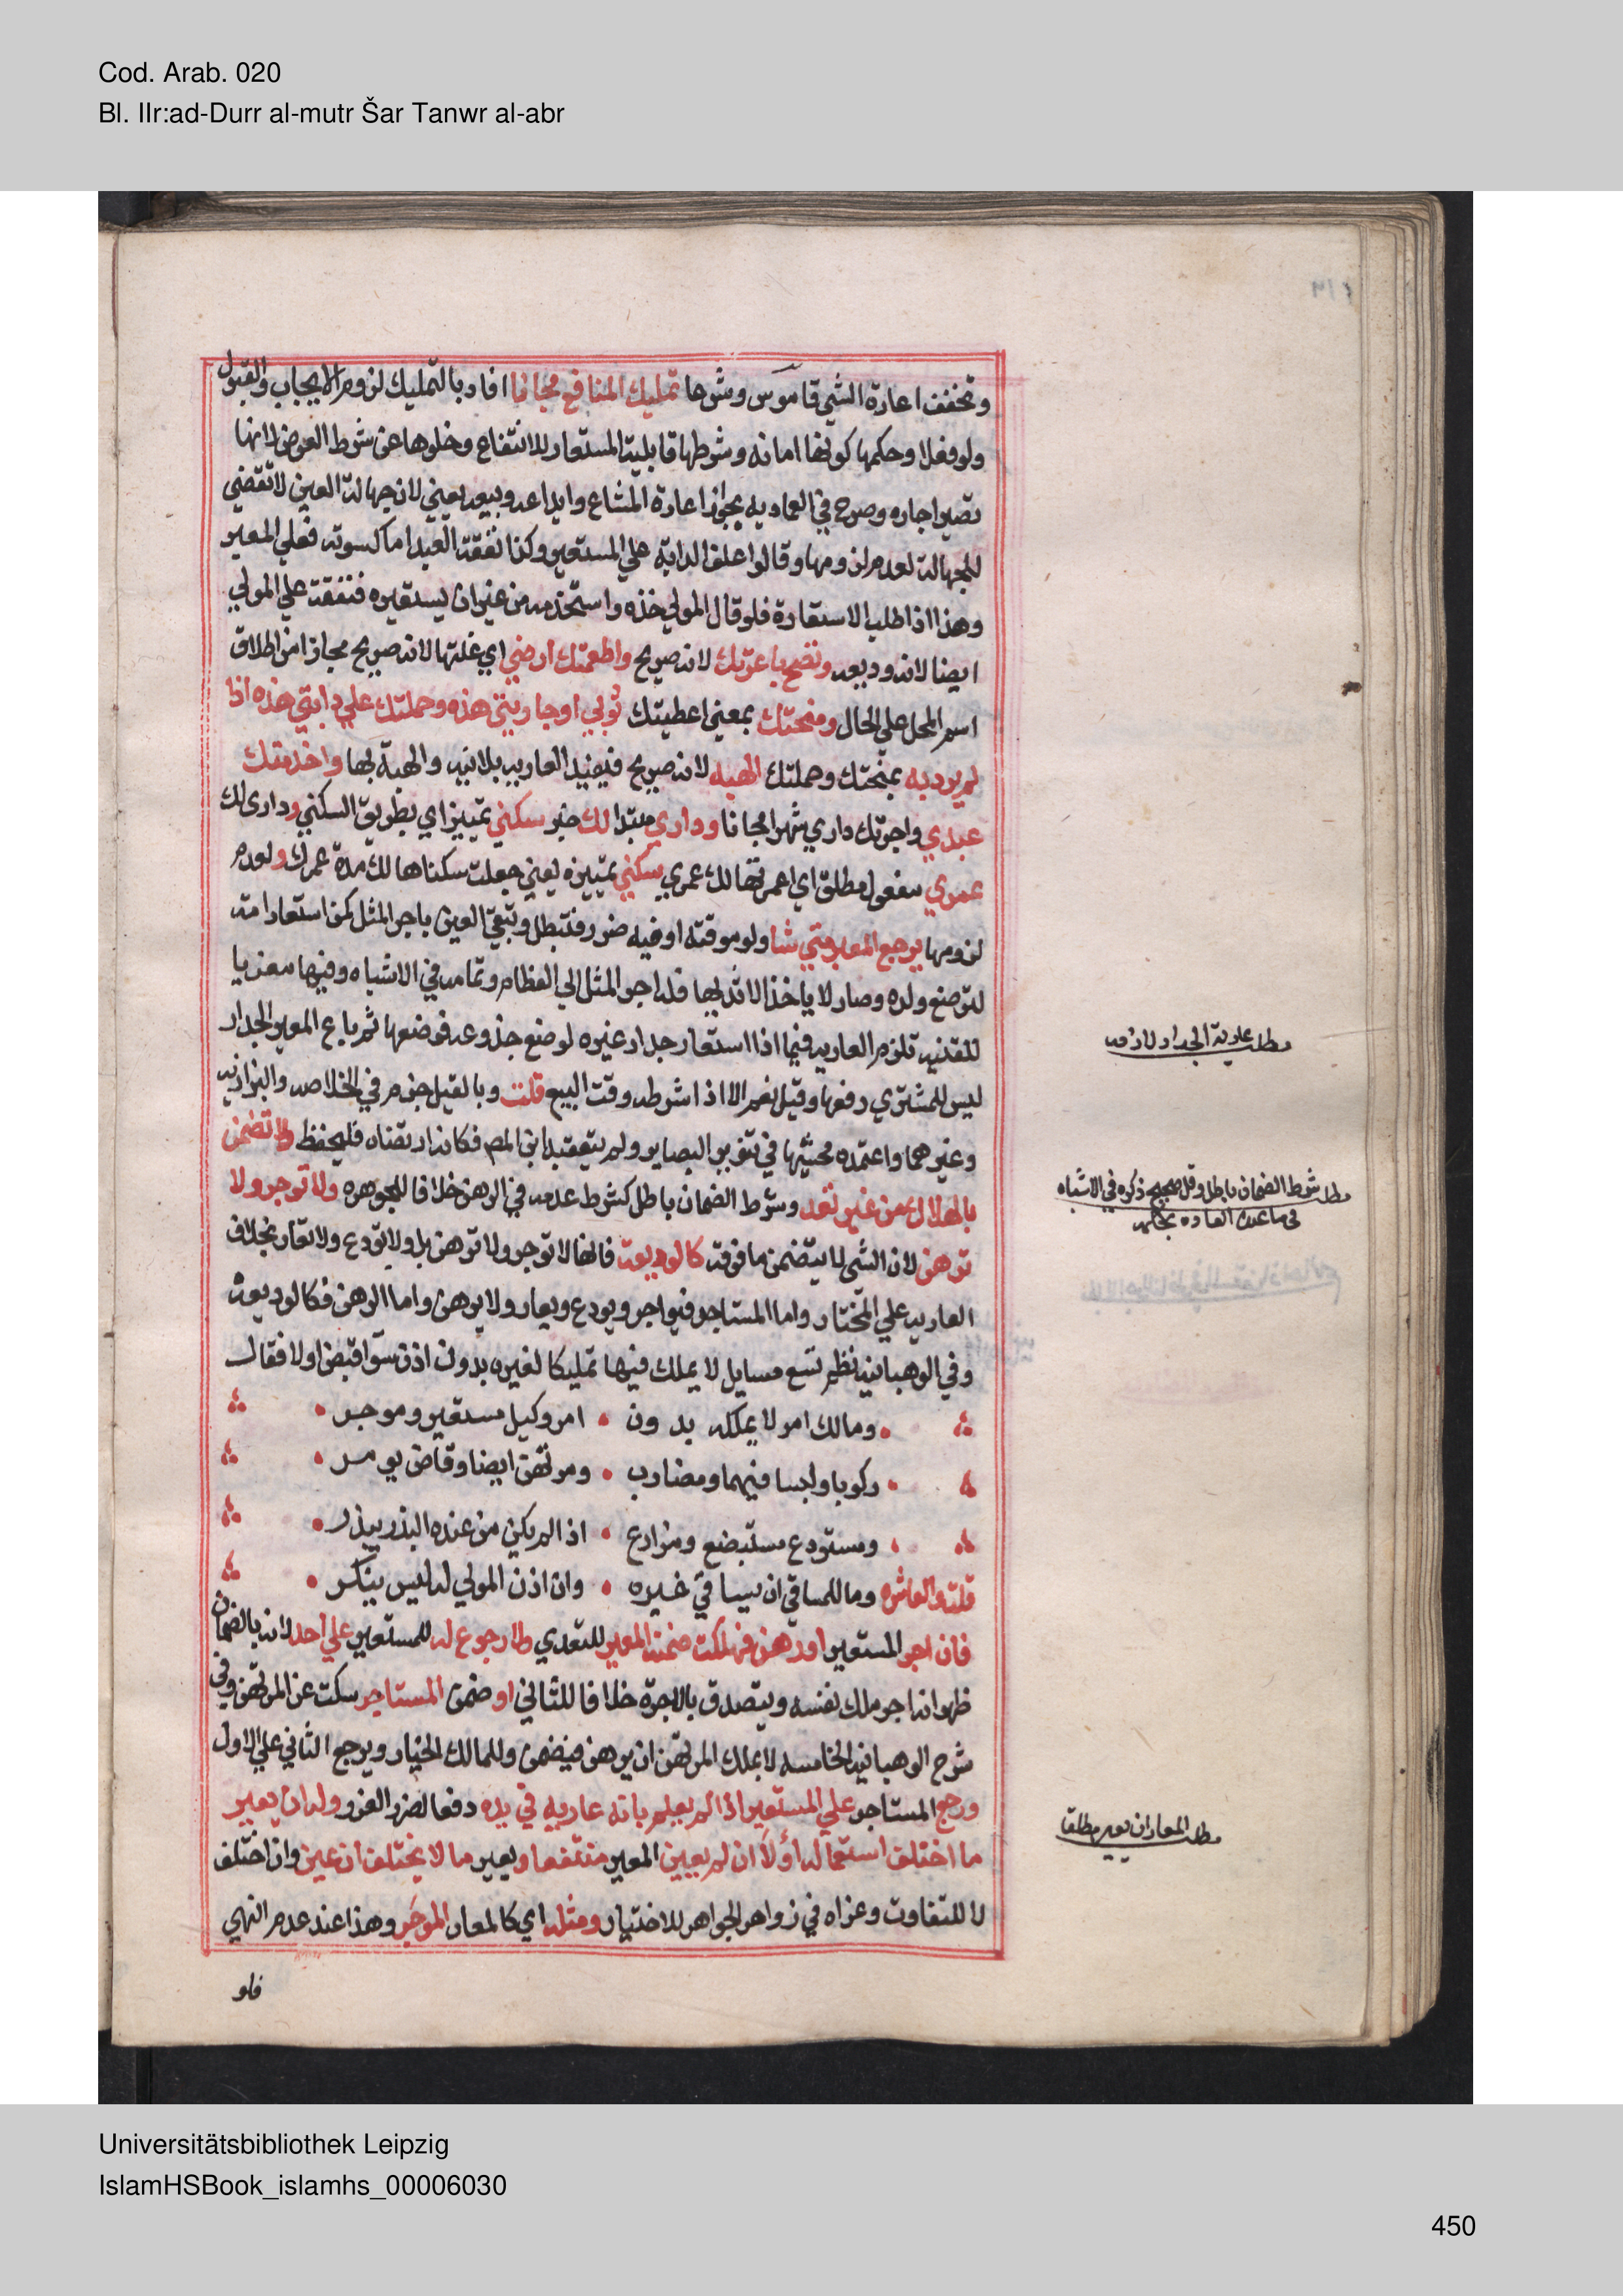 Cod. Arab. 020
Bl. IIr:ad-Durr al-mutr Šar Tanwr al-abr
وتخفف اعارة الشي قاموس وشرعا تمليك المنافع مجانا افاد بالتمليك لزوم الايجاب والقبول
ولو فعلا وحكمها كونها امانه وشرطها قابلية المستعار للانتفاع وخلوها عن شرط العوض لانها
تصير اجاره وصرح في العماديه بجواز اعارة المشاع وايداعه وبيعه يعني لان جهالة العين لا تفضي
للجهالة لعدم لزومها وقالوا علف الدابة علي المستعير وكذا نفقة العبد اما كسوته فعلي المعير
وهذا اذا طلب الاستعارة فلو قال المولي خذه واستخدمه من غير ان يستعيره فنفقته علي المولي
ايضا لانه وديعه وتصح باعرتك لانه صريح واطعمتك ارضي اي غلتها لانه صريح مجازا من اطلاق
اسم المحل علي الحال ومنحتك بمعني اعطيتك ثوبي او جاريتي هذه وحملتك علي دابتي هذه اذا
لم يرد به بمنحتك وحملتك الهبه لانه صريح فيفيد العارية بلا نيه والهبة بها واخدمتك
عبدي واجرتك داري شهرا مجانا وداري مبتدا لك خبر سكني تمييز اي بطريق السكني وداري لك
عمري مفعول مطلق اي اعمرتها لك عمري سكني تمييزه يعني جعلت سكناها لك مدة عمرك ولعدم
لزومها يرجع المعير متي شا ولو موقته او فيه ضرر فتبطل وتبقي العين باجر المثل كمن استعار امة
لترضع ولده وصار لا ياخذ الا ثديها فله اجر المثل الي الفطام وتمامه في الاشباه وفيها معزيا
للقنيه تلزم العاريه فيما اذا استعار جدار غيره لوضع جذوعه فوضعها ثم باع المعير الجدار
ليس للمشتري رفعها وقيل نعم الا اذا شرطه وقت البيع قلت وبالقيل جزم في الخلاصه والبزازيه
وغيرهما واعتمده محشيها في تنوير البصاير ولم يتعقبه ابن المص فكانه ارتضاه فليحفظ ولا تضمن
بالهلاك من غير تعد وشرط الضمان باطل كشرط عدمه في الرهن خلافا للجوهره ولا توجر ولا
ترهن لان الشي لا يتضمن ما فوقه كالوديعة فانها لا توجر ولا ترهن بل ولا تودع ولا تعار بخلاف
العاريه علي المختار واما المستاجر فيواجر ويودع ويعار ولا يرهن واما الرهن فكالوديعة
وفي الوهبانيه نظم تسع مسايل لا يملك فيها تمليكا لغيره بدون اذن سوا قبض او لا فقال
ومالك امر لا يملكه بدون • امر وكيل مستعير وموجر •
ركوبا ولبسا فيهما ومضارب • ومرتهن ايضا وقاض يومر •
ومستودع مستبضع ومزارع • اذا لم يكن من عنده البذر يبذر •
قلت والعاشره وما للمساقي ان يساقي غيره • وان اذن المولي له ليس ينكر •
فان اجر المستعير او رهن فهلكت ضمنه المعير للتعدي ولا رجوع له للمستعير علي احد لانه بالضمان
ظهر انه اجر ملك نفسه ويتصدق بالاجرة خلافا للثاني او ضمن المستاجر سكت عن المرتهن وفي
شرح الوهبانيه الخامسه لا يملك المرتهن ان يرهن فيضمن وللمالك الخيار ويرجع الثاني علي الاول
ورجع المستاجر علي المستعير اذا لم يعلم بانه عاريه في يده دفعا لضرر الغرر وله ان يعير
ما اختلف استعماله اولا ان لم يعين المعير منتفعا ويعير ما لا يختلف ان عين وان اختلف
لا للتفاوت وعزاه في زواهر الجواهر للاختيار ومثله اي كالمعار الموجر وهذا عند عدم النهي
فلو
مطلب عارية الجدار لازمه
مطلب شرط الضمان باطل وقيل صحيح ذكره في الاشباه
في قاعدة العادة محكمة
مطلب المعار ان يعير مطلقا
Universitätsbibliothek Leipzig
IslamHSBook_islamhs_00006030
450